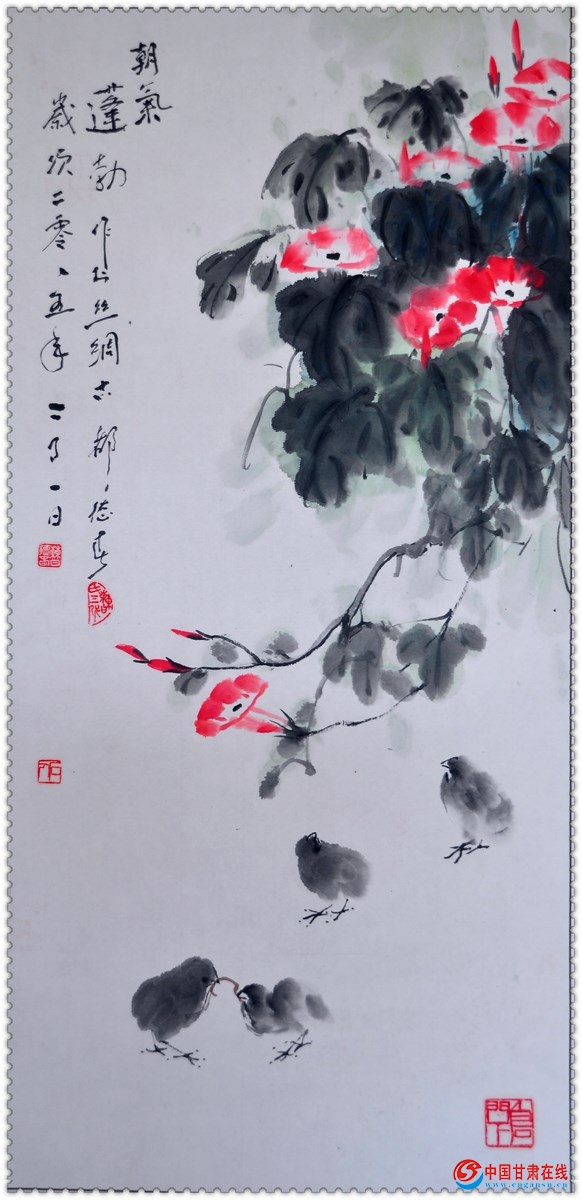 朝氣
蓬勃 作於絲綢古都、德春
歲次二零、五年二月一日
中国甘肃在线
www.cngansu.cn